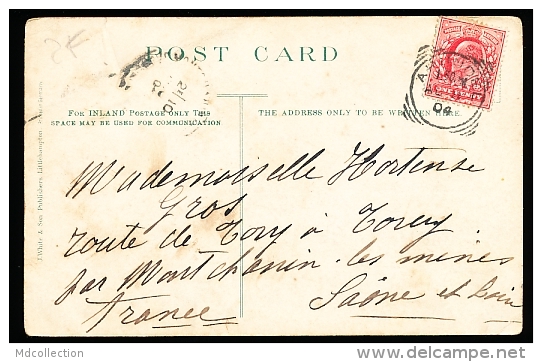 POST CARD
FOR INLAND POSTAGE ONLY THIS
SPACE MAY BE USED FOR COMMUNICATION
THE ADDRESS ONLY TO BE WRITTEN HERE.
J. White & Son, Publishers, Littlehampton.
04
Mademoiselle Hortense
Gros
route de Torcy à Torcy
par Montchanin-les mines
Saône et Loire
France
Mdcollection
www.delcampe.net